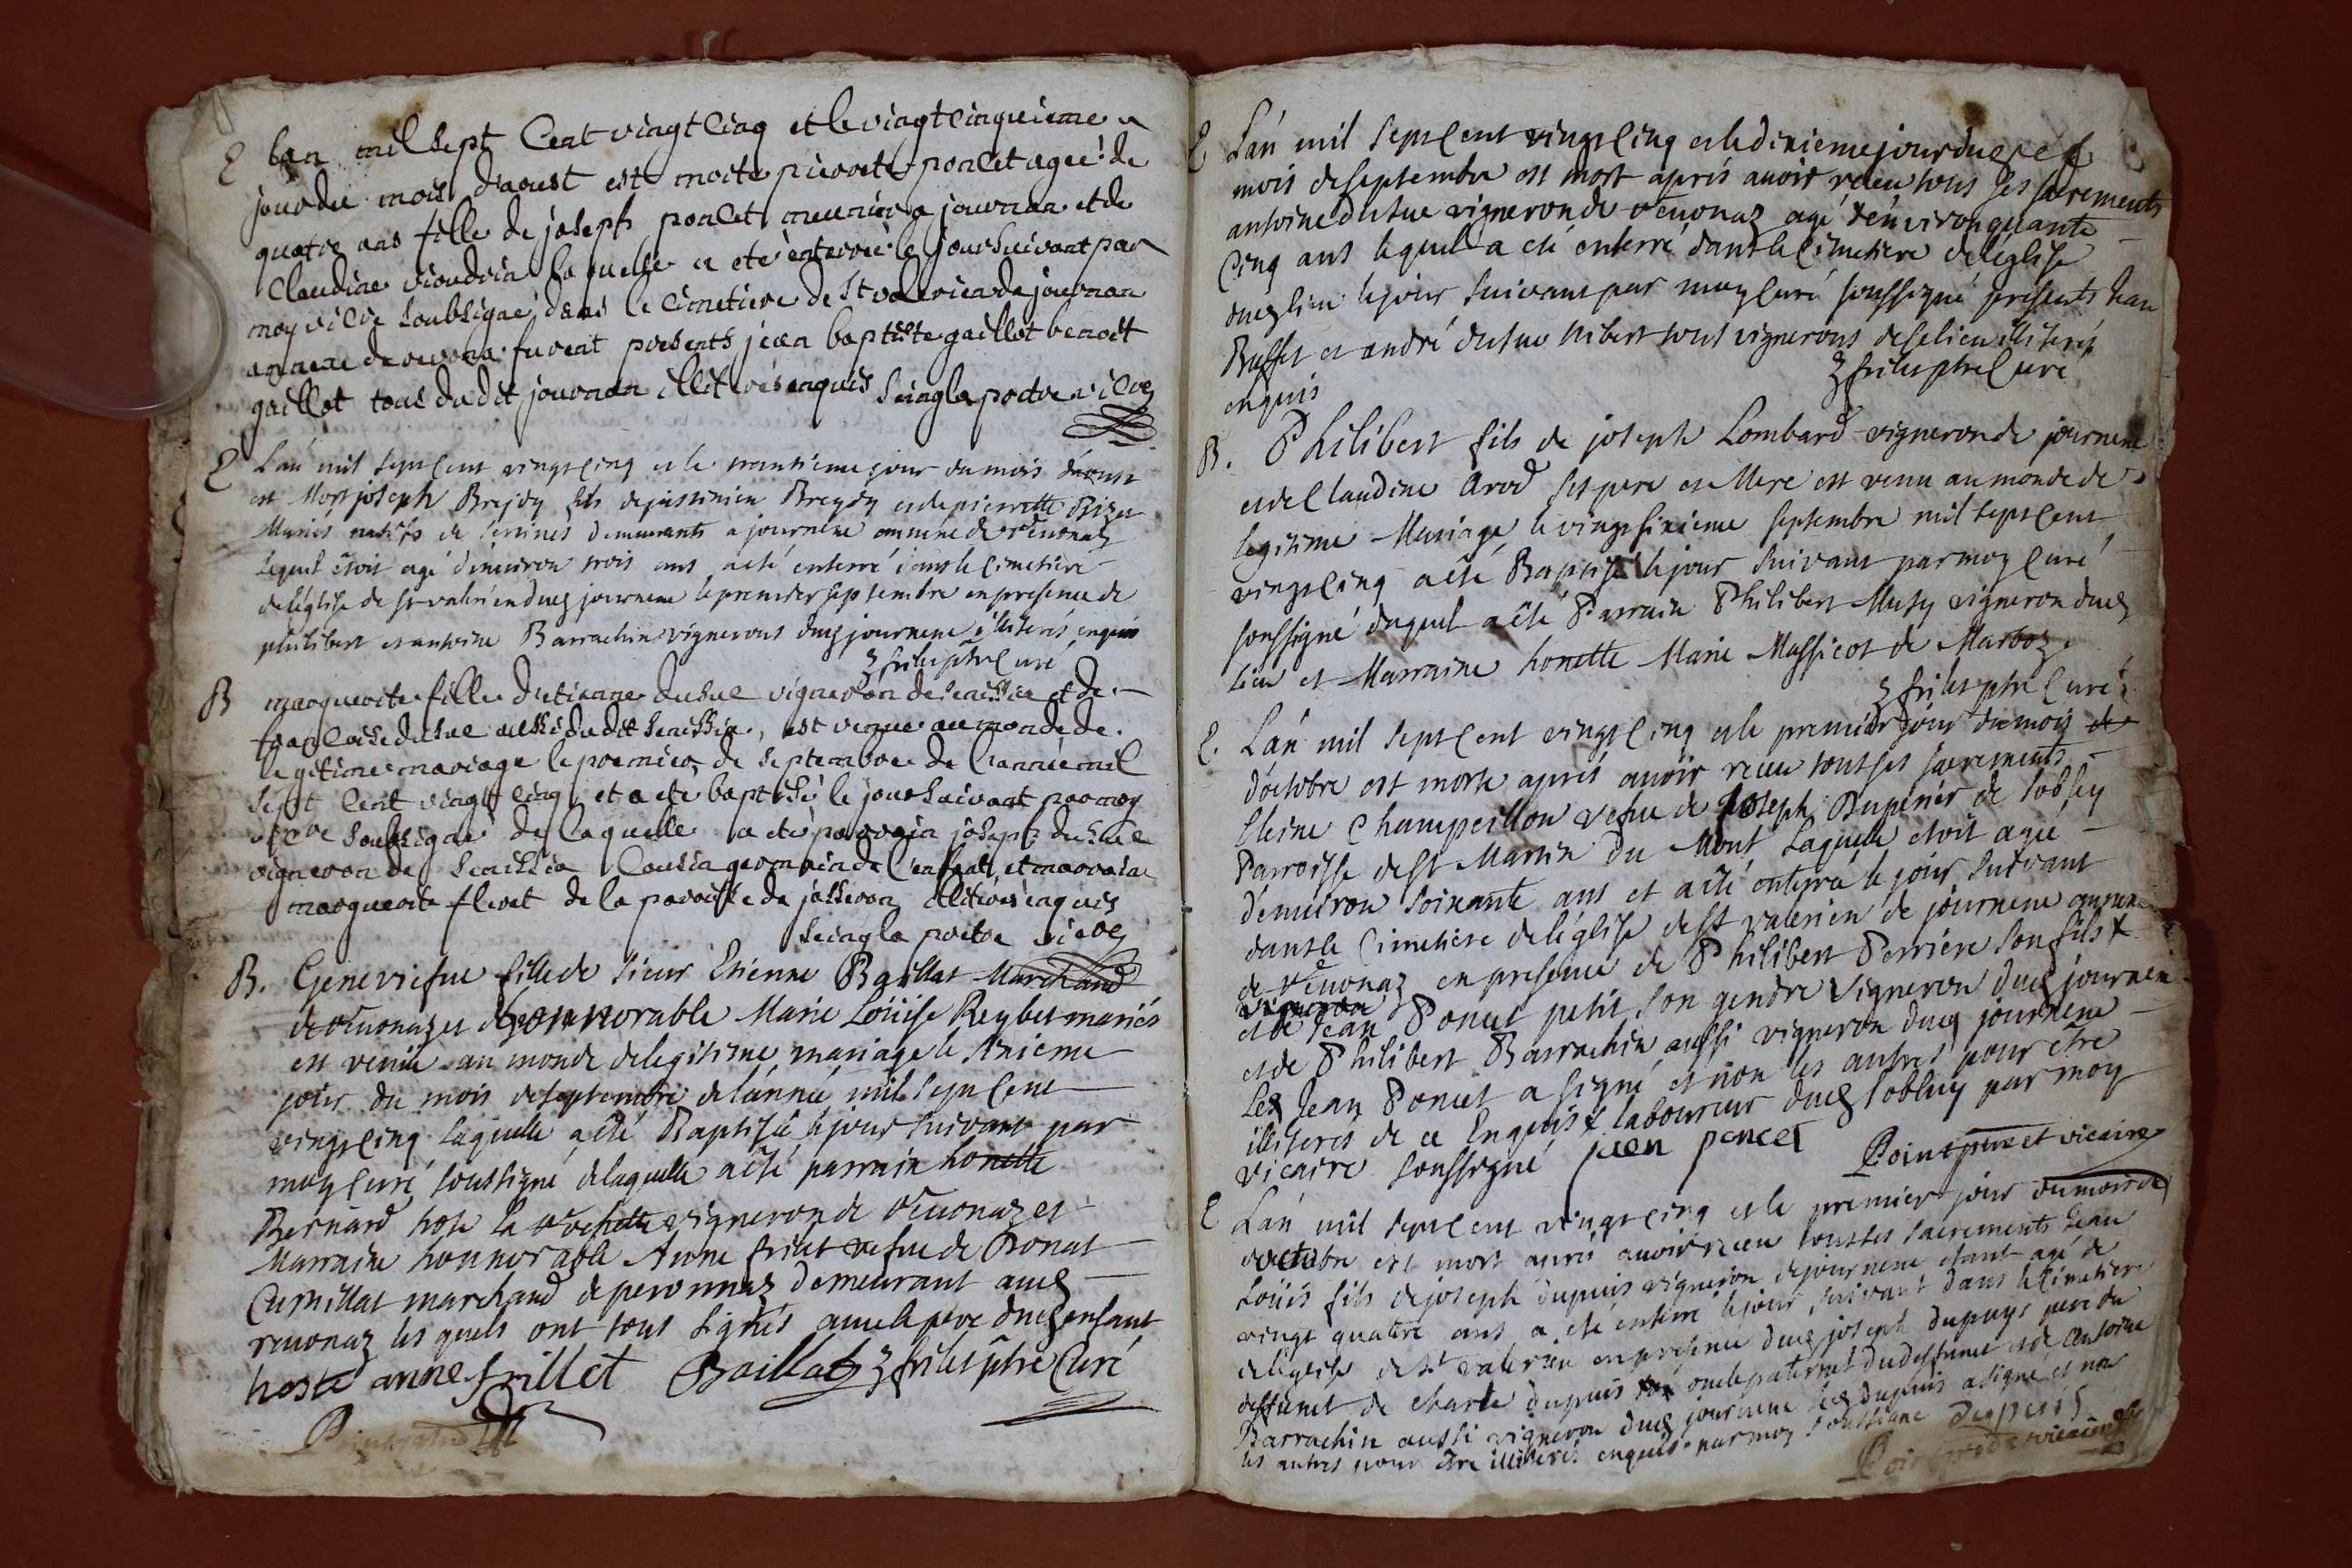 E lan mil sept Cent vingt Cinq et le vingt cinquieme
jour du mois d'aoust est morte pierrete poncet agée de
quatre ans fille de joseph poncet meunier a journan et de
Claudine vioudrin laquelle a eté enterrée le jour suivant par
moy vicre soubsigné dans le cimetiere de St valerien de journan
annexe de revona furent presents jean baptiste gaillot benoit
gaillot tous du dit journan illiterés enquis
E Lan mil sept Cent vingt Cinq et le trantieme jour du mois daoust
est Mort joseph Breydy fils de justinien Breydy et de pierrette Bizet
Mariés natifs de demeurants a journene annexe de revonas
Lequel etoit agé d'environ trois ans, a eté enterré dans le Cimetiere
de leglise de st valerien dud journene le premier septembre en presence de
philibert et antoine Barrachin vignerons dud journene illiterés enquis
frilet ptre Curé
B marguerite fille d'etienne dusue vigneron de senissia et de
francoise dusue aussi du dit senissia, est venue au monde de
legitime mariage le premier de septembre de l'année mil
sept Cent vingt cinq et a ete baptisé le jour suivant par moy
vicre soubsigné de laquelle a eté parrain joseph dusue
vigneron de senissia Cousin germain de l'enfant et marraine
marguerite floret de la paroisse de jasseron illiterés enquis
B. Genevieve fille de sieur Etienne Baillat Marchand
de revonaz et d'honnorable Marie Loüise Reybet mariés
est venüe au monde de legitime mariage le sixieme
jour du mois de septembre de lannée mil sept Cent
vingt cinq laquelle a eté Baptisée le jour suivant par
moy Curé soussigné de laquelle a eté parrain honette
Bernard hoste vigneron de revonaz et
Marraine honnorable Anne frilet vefue de Donat
Cusillat marchand de peronnas demeurant aud
revonaz les quels ont tous signés avec le pere dud enfant
hoste anne frillet Baillat frilet ptre Curé
E Lan mil sept Cent vingt Cinq et le dixieme jour du
mois de septembre est mort aprés avoir receu tous ses sacrements
antoine dusue vigneron de revonaz agé d'environ quarante
Cinq ans lequel a eté enterré dans le Cimetiere de léglise
dud lieu le jour suivant par moy Curé soussigné presents Jean
Buffet et andré dusue hibert tous vignerons de ce lieu illiterés
enquis
frilet ptre Curé
B. Philibert fils de joseph Lombard vigneron de journene
et de Claudine Arod ses pere et Mere est venu au monde de
legitime Mariage le vingt sixieme septembre mil sept Cent
vingt cinq a eté Baptisé le jour suivant par moy Curé
soussigné duquel a eté Parrain Philibert Musy vigneron dud
Lieu et Marraine honette Marie Massicot de Marboz
frilet ptre Curé
E. Lan mil sept Cent vingt Cinq et le premier jour du mois de
d'octobre est morte aprés avoir receu tous ses sacrements
Champeillon vefue de Joseph Duperier de Soblay
Parroisse de St Martin du Mont Laquelle etoit agée
d'environ soixante ans et a eté enterré le jour suivant
dans le Cimetiere de léglise de St valerien de journene annexe
de revonaz en presence de Philibert Perriere son fils x
vigneron
et de Jean Poncet petit son gendre vigneron dud journene
et de Philibert Barrachin aussi vigneron dud journene
Led Jean Poncet a signé et non les autres pour etre
illiterés de ce Enquis x laboureur dud Soblay par moy
vicaire soussigné jean poncet Point ptre et vicaire
E Lan mil sept Cent vingt cinq et le premier jour du mois de
d'octobre est mort aprés avoir receu tous ses sacrements Jean
Loüis fils de joseph dupuis vigneron de journene etant agé de
vingt quattre ans a eté enterré le jour suivant dans le Cimetiere
de leglise de st valerien en presence dud joseph dupuys pere du
deffunct de charle dupuis oncle paternel du deffunct et de antoine
Barrachin aussi vigneron dud journene led dupuis a signé et non
les autres pour être illiterés enquis par moy soussigné Dupuis
Point ptre et vicaire